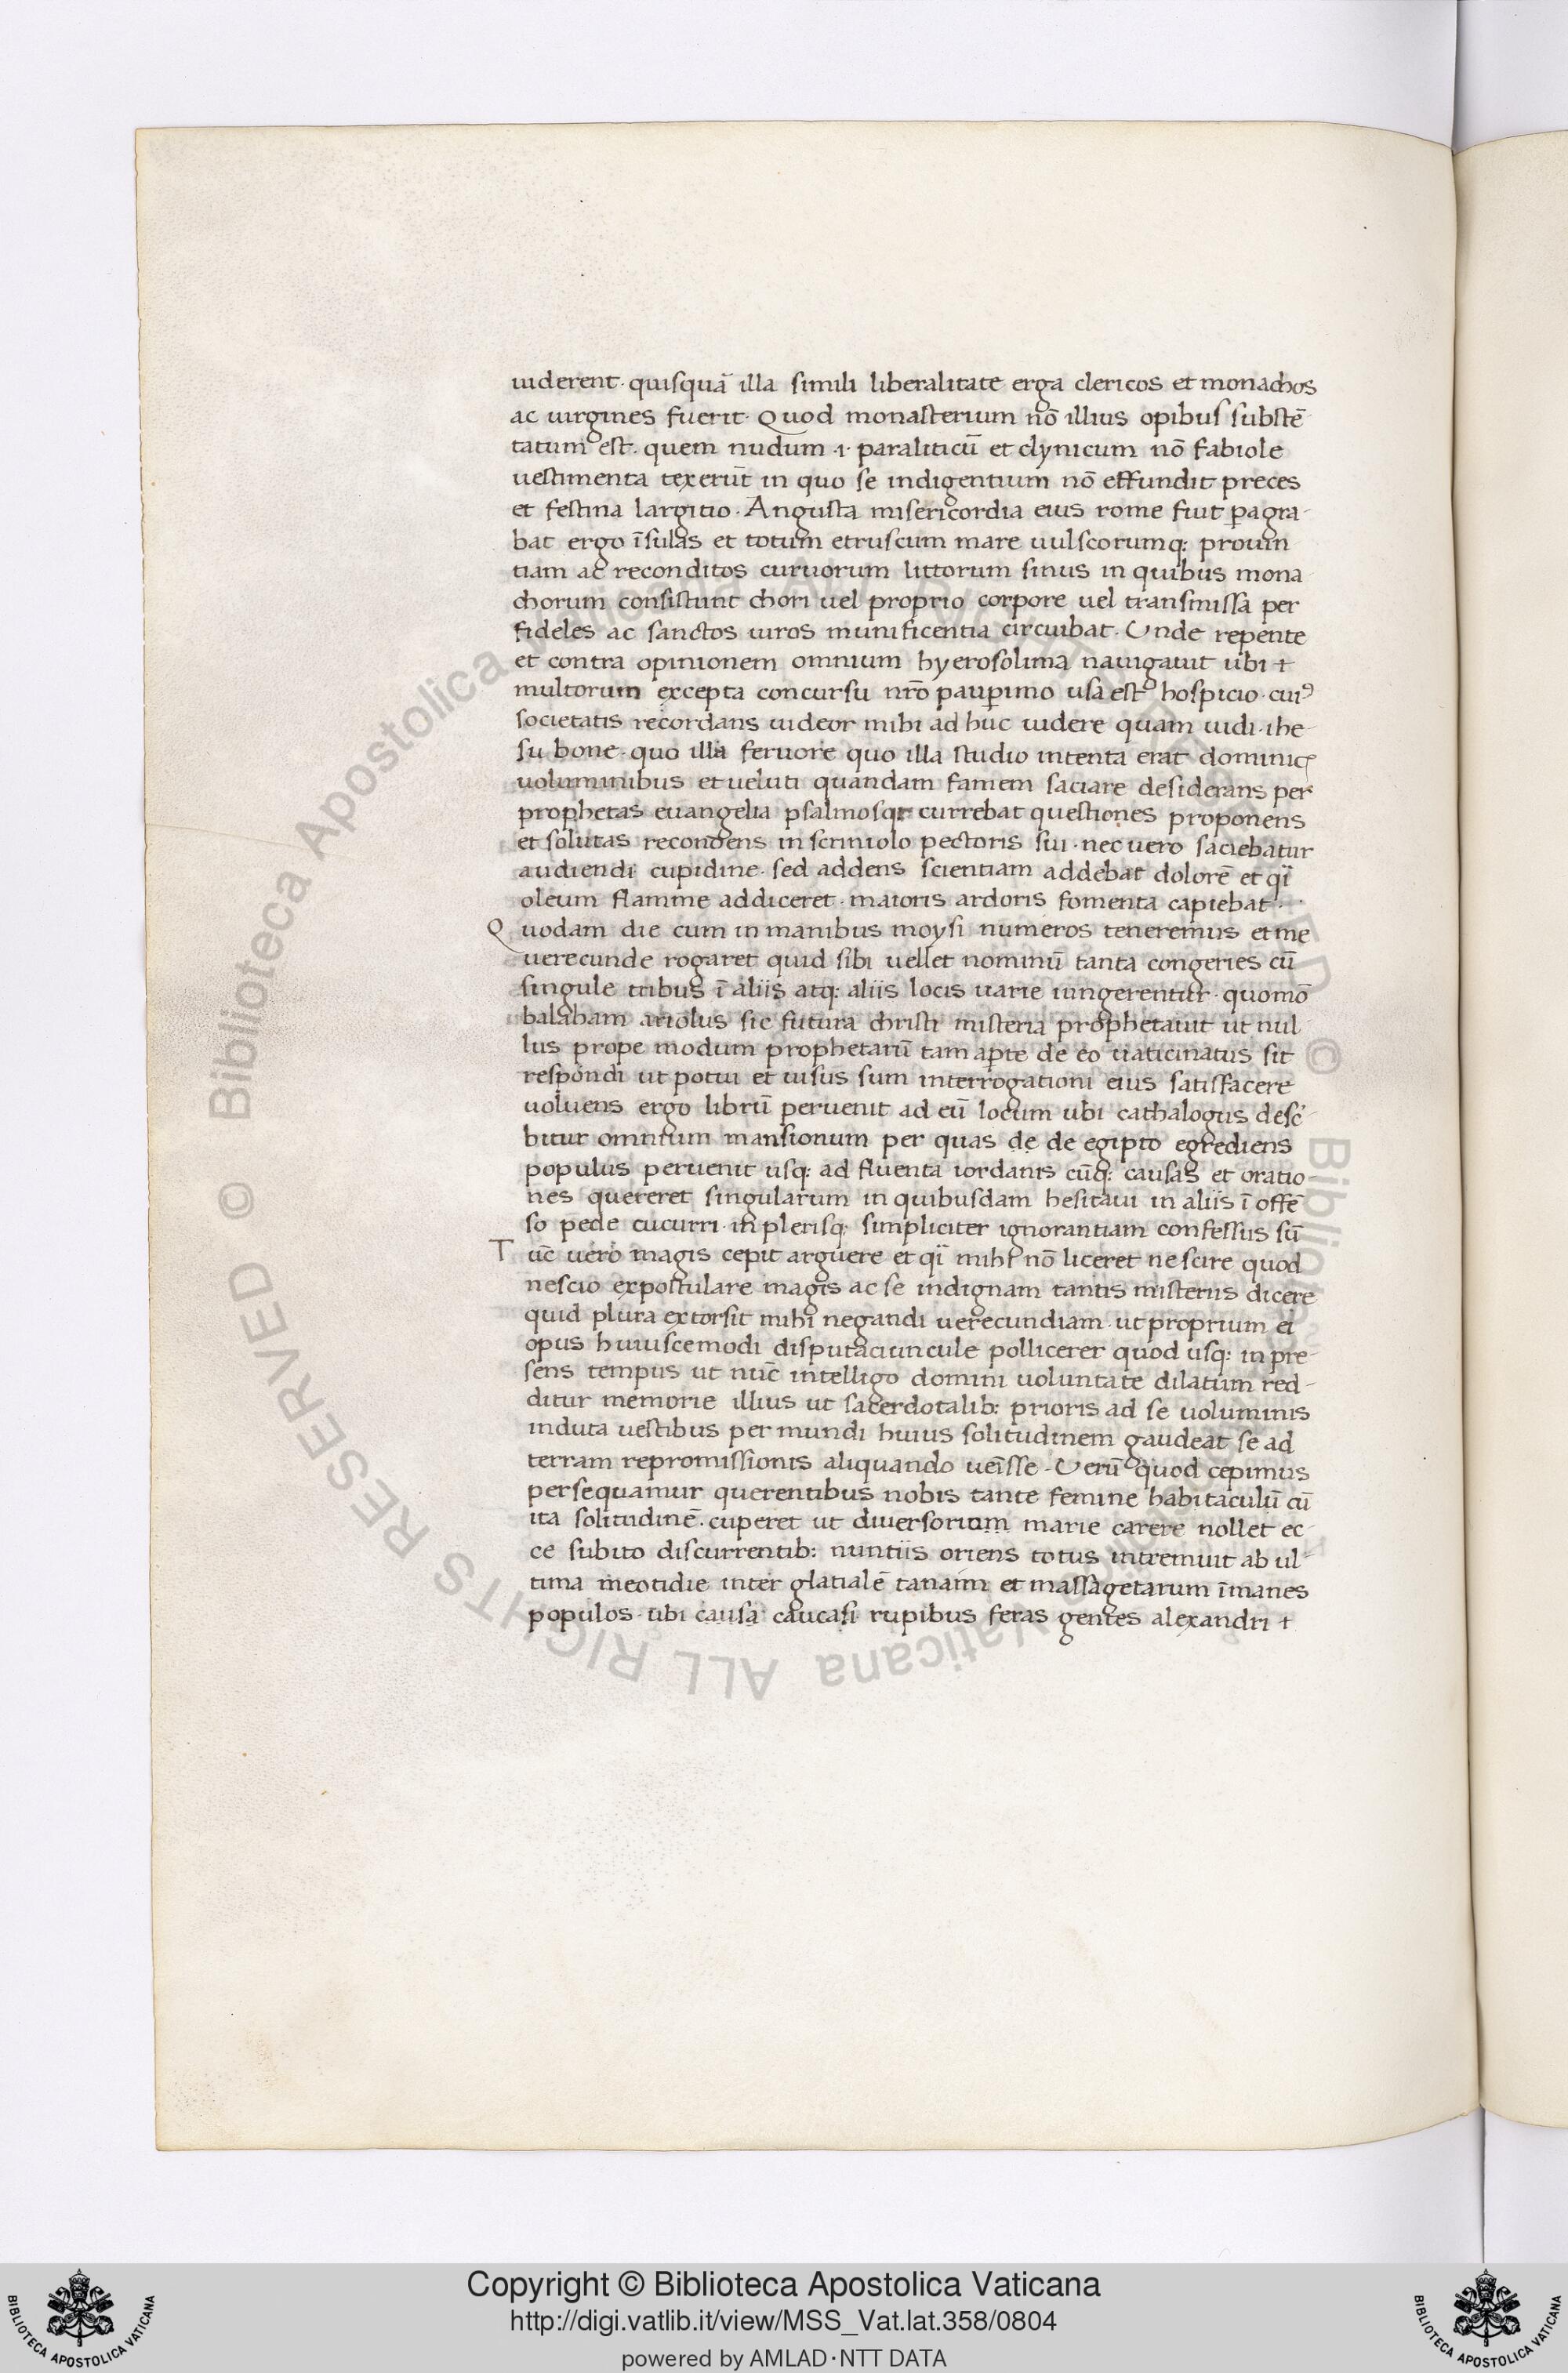 uiderent · quisquā illa simili liberalitate erga clericos et monachos
ac uirgines fuerit · Quod monasterium nō illius opibus substē
tatum est · quem nudum · i · paraliticū et clynicum nō fabiole
uestimenta texerūt in quo se indigentium nō effundit preces
et festina largitio · Angusta misericordia eius rome fuit ꝑagra-
bat ergo īsulas et totum etruscum mare uulscorumq: prouin
tiam ac reconditos curuorum littorum sinus in quibus mona
chorum consistunt chori uel proprio corpore uel transmissa per
fideles ac sanctos uiros munificentia circuibat · Unde repente
et contra opinionem omnium hyerosolima nauigauit ubi +
multorum excepta concursu nr̄o pauꝑimo usa est hospicio · cuiꝰ
societatis recordans uideor mihi ad huc uidere quam uidi · ihe-
su bone · quo illa feruore quo illa studio intenta erat dominicę
uoluminibus et ueluti quandam famem saciare desiderans per
prophetas euangelia psalmosq: currebat questiones proponens
et solutas recondens in scriniolo pectoris sui · nec uero saciebatur
audiendi cupidine · sed addens scientiam addebat dolorē et qī
oleum flamme addiceret · maioris ardoris fomenta capiebat ·
Quodam die cum in manibus moysi numeros teneremus et me
uerecunde rogaret quid sibi uellet nominū tanta congeries cū
singule tribus ī aliis atq: aliis locis uarie iungerentur · quomō
balaham ariolus sic futura christi misteria prophetauit ut nul
lus prope modum prophetarū tam aꝑte de eo uaticinatus sit
respondi ut potui et uisus sum interrogationi eius satisfacere
uoluens ergo librū peruenit ad eū locum ubi cathalogus desc̄-
bitur omnium mansionum per quas de de egipto egrediens
populus peruenit usq: ad fluenta iordanis cūq: causas et oratio-
nes quereret singularum in quibusdam hesitaui in aliis ī offē
so pede cucurri · in plerisq: simpliciter ignorantiam confessus sū
Tūc uero magis cepit arguere et qī mihi nō liceret nescire quod
nescio expostulare magis ac se indignam tantis misteriis dicere
quid plura extorsit mihi negandi uerecundiam · ut proprium ei
opus huiuscemodi disputaciuncule pollicerer quod usq: in pre-
sens tempus ut nūc intelligo domini uoluntate dilatum red-
ditur memorie illius ut sacerdotalib: prioris ad se uoluminis
induta uestibus per mundi huius solitudinem gaudeat se ad
terram repromissionis aliquando ueīsse · Uerū quod cepimus
persequamur querentibus nobis tante femine habitaculū cū
ita solitudinē · cuperet ut diuersorium marie carere nollet ec-
ce subito discurrentib: nuntiis oriens totus intremuit ab ul-
tima meotidie inter glatialē tanaim et massagetarum īmanes
populos · ubi causa caucasi rupibus feras gentes alexandri +
© Biblioteca Apostolica Vaticana ALL RIGHTS RESERVED
Copyright © Biblioteca Apostolica Vaticana
http://digi.vatlib.it/view/MSS_Vat.lat.358/0804
powered by AMLAD·NTT DATA
BIBLIOTECA APOSTOLICA VATICANA
BIBLIOTECA APOSTOLICA VATICANA